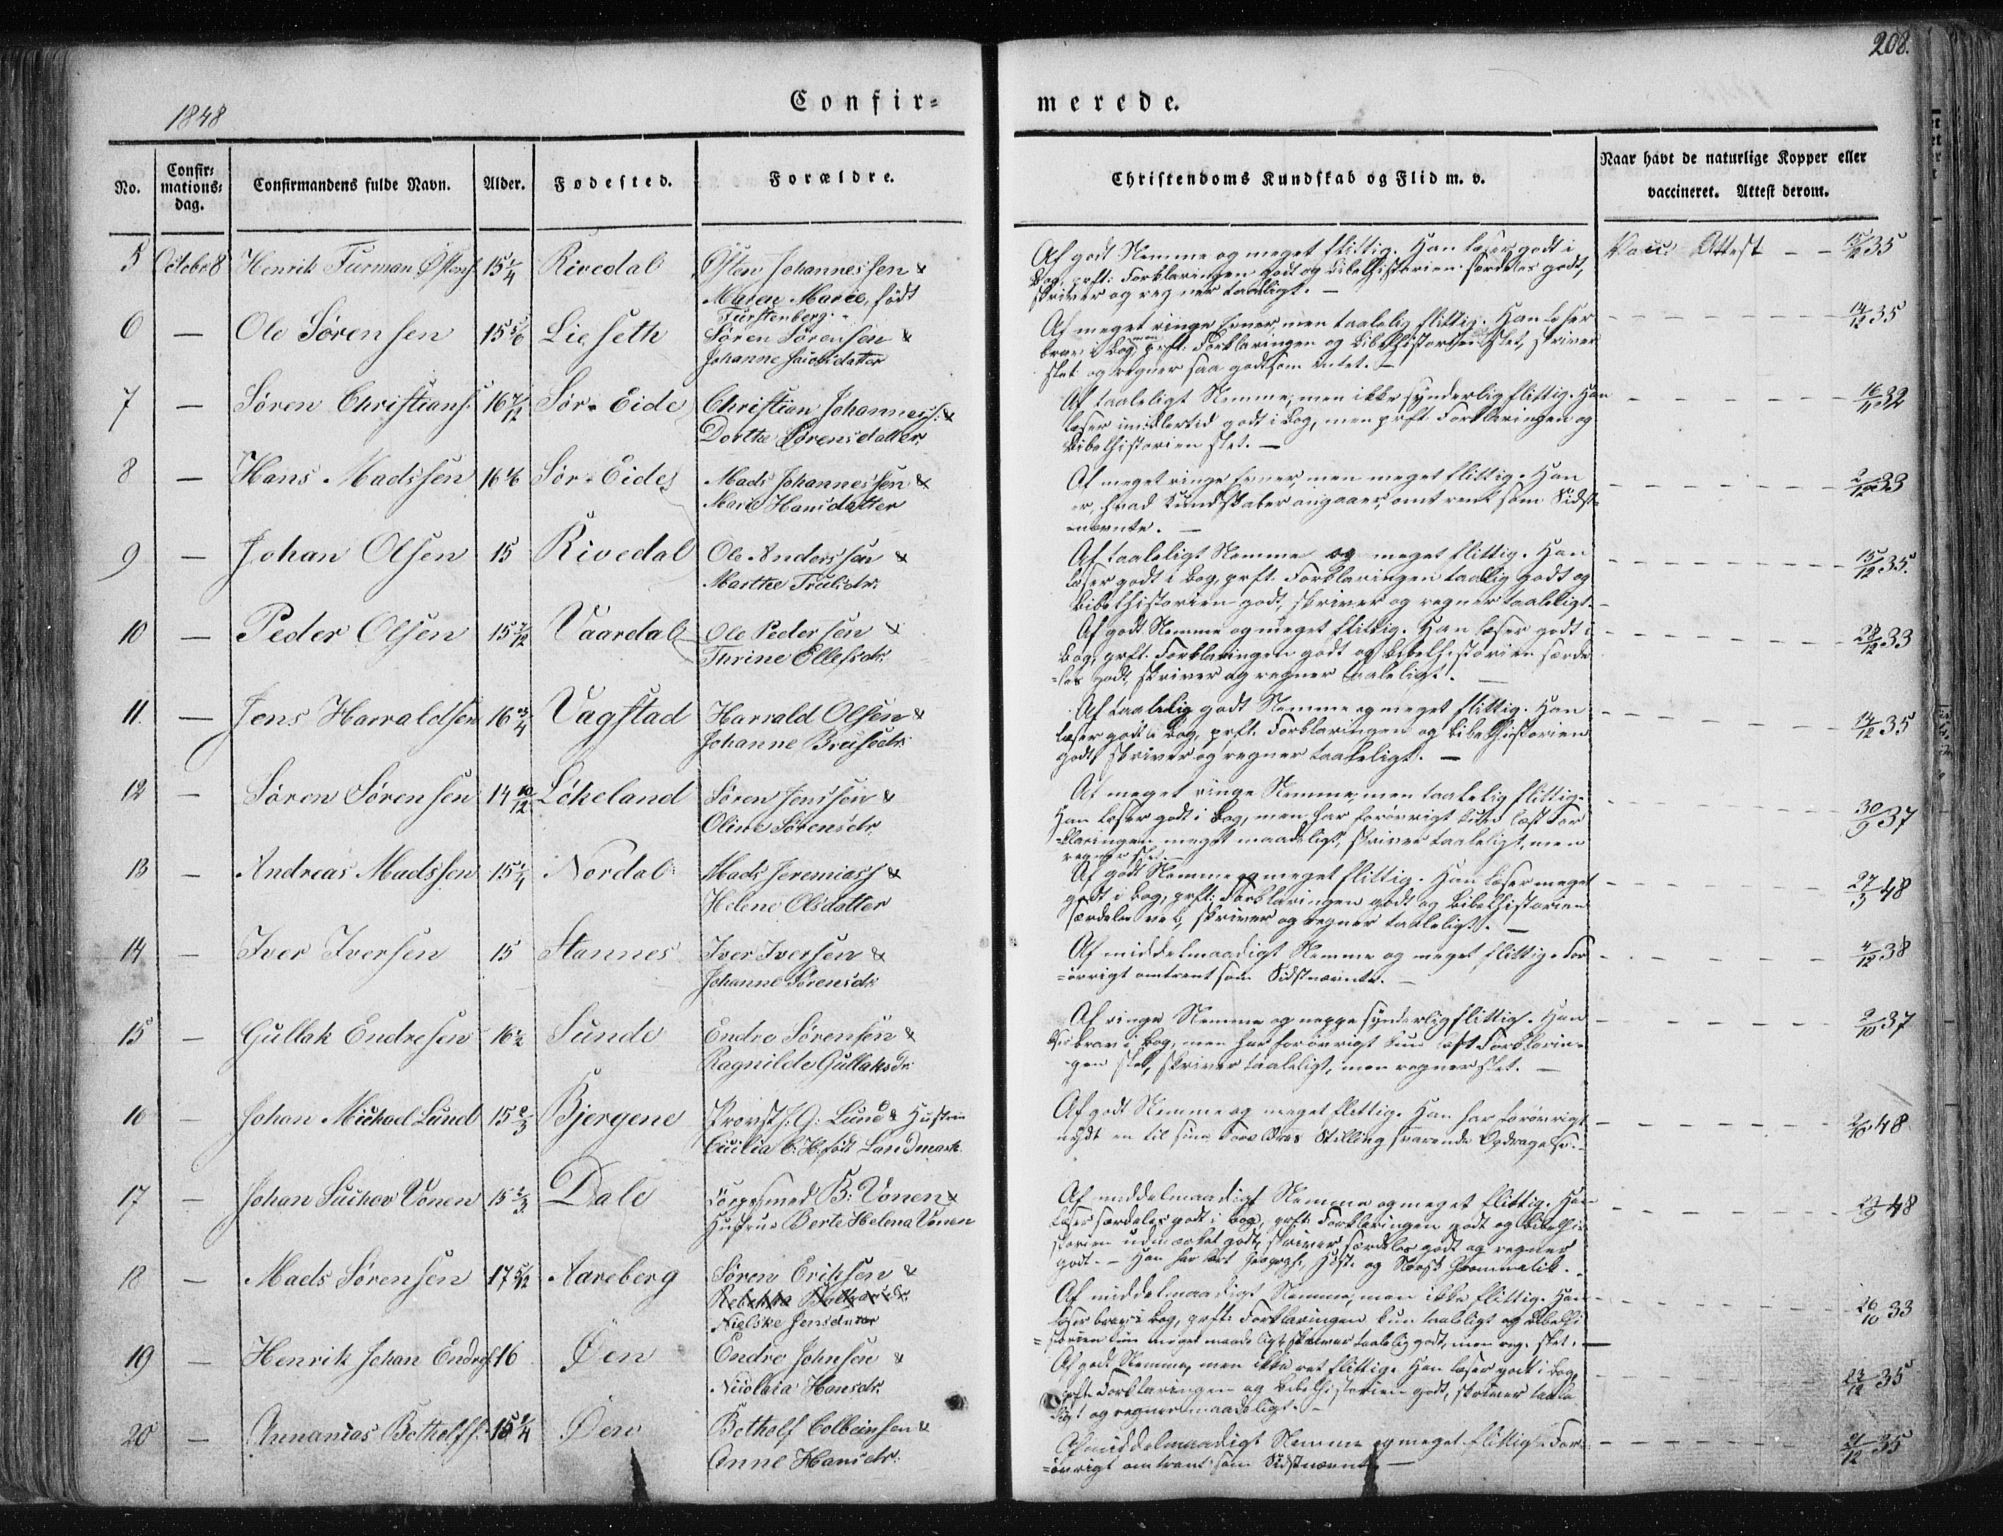 208.
1848
Confir=
merede.
No.
Confir=
mations=
dag.
Confirmandens fulde Navn.
Alder.
Fødested.
Forældre.
Christendoms Kundskab og Flid m. v.
Naar havt de naturlige Kopper eller
vaccineret. Attest derom.
5 October 8 Henrik Furman Østens. 15 1/4 Rivedal Østen Johannessen &
Maren Marie, født
Fürstenberg.
Af godt Nemme og meget flittig. Han læser godt i
Bog, prft: Forklaringen godt og Bibelhistorien særdeles godt,
skriver og regner taaligt. —
Vacc. Attest — — 15/12 35
6 — Ole Sørensen 15 5/6 Lieseth Søren Sørensen &
Johanne Jacobsdatter
Af meget ringe Evner, men taalelig flittig. Han læser
brav i Bog, men prft: Forklaringen og Bibelhistorien slet, skriver
slet og regner saa godt som intet. —
14/12 35
7 — Søren Christians. 16 7/12 Sør-Eide Christian Johanness. &
Dorthe Sørensdatter
Af taaleligt Nemme, men ikke synderlig flittig. Han
læser imidlertid godt i Bog, men prft. Forklaringen og
Bibelhistorien slet. —
16/11 32
8 — Hans Madssen 16 1/6 Sør-Eide Mads Johannessen &
Marie Hansdatter
Af meget ringe Evner, men meget flittig. Han
er, hvad Kundskaber angaaer, omtrent som Sidst=
=nævnte. —
2/12 33
9 — Johan Olsen 15 Rivedal Ole Anderssen &
Marthe Trulsdr.
Af taaleligt Nemme og meget flittig. Han
læser godt i Bog, prft. Forklaringen taalelig godt og
Bibelhistorien godt, skriver og regner taaleligt. —
15/12 35.
10 — Peder Olsen 15 7/12 Vaardal Ole Pedersen &
Thrine Ellefsdr.
Af godt Nemme og meget flittig. Han læser godt i
Bog, prft: Forklaringen godt og Bibelhistorien særde
=les godt, skriver og regner taaleligt. —
28/12 33
11. — Jens Harraldsen 16 3/4 Vagstad Harrald Olsen &
Johanne Brusedr.
Af taalelig godt Nemme og meget flittig. Han
læser godt i Bog, prft. Forklaringen og Bibelhistorien
godt, skriver og regner taaleligt. —
14/12 35
12 — Søren Sørensen 14 10/12 Løkeland Søren Jenssen &
Oline Sørensdr.
Af meget ringe Nemme, men taalelig flittig.
Han læser godt i Bog, men har forøvrigt kun læst For
=klaringen meget maadeligt, skriver taaleligt, men
regner slet. —
30/9 37
13 — Andreas Madssen 15 1/4 Nordal Mads Jeremiass. &
Helene Olsdatter
Af godt Nemme og meget flittig. Han læser meget
godt i Bog, prft: Forklaringen godt og Bibelhistorien
særdeles vel, skriver og regner taaleligt. —
27/3 48
14 — Iver Iversen 15 Stannes Iver Iversen &
Johanne Sørensdr.
Af middelmaadigt Nemme og meget flittig. For
=øvrigt omtrent som Sidstnævnte. —
4/12 38
15 — Gullak Endresen 16 1/2 Sunde Endre Sørensen &
Ragnilde Gullaksdr.
Af ringe Nemme og neppe synderlig flittig. Han
læs brav i Bog, men har forøvrigt kun læst Forklarin=
gen slet, skriver taaleligt, men regner slet. —
9/10 37
16 — Johan Michael Lund 15 2/3 Bjergene Provst J. G: Lund & Hustru
Cecilia C. H. født Landmark
Af godt Nemme og meget flittig. Han har forøvrigt
nydt en til sine Forældres Stilling svarende Opdragelse. —
2/10 48
17 — Johan Sechov Vonen 15 2/3 Dale B: Vonen &
Hustrue Berte Helena Vonen
Af middelmaadigt Nemme og meget flittig. Han
læser særdeles godt i Bog, prft. Forklaringen godt og Bibelhi=
storien udmærket godt, skriver særdeles godt og regner
godt. — Han har lært Geograph., Hist. og Norsk Grammatik.
29/9 48
18 — Mads Sørensen 17 5/12 Aareberg Søren Eriksen &
Nielske Jensdatter
Af middelmaadigt Nemme, men ikke flittig. Han
læser brav i Bog, prft. Forklaringen kun taaleligt og Bibelhi
=storien kun meget maadeligt, skriver taalelig godt, men reg. slet. —
26/10 33
19 — Henrik Johan Endres. 16 Øen Endre Johnsen &
Nicolaia Hansdr.
Af godt Nemme, men ikke ret flittig. Han læser godt i Bog,
prft. Forklaringen og Bibelhistorien godt, skriver taale
ligt og regner maadeligt. —
23/12 35
20 — Annanias Botholfs. 15 1/4 Øen Botholf Colbeinsen &
Anne Hansdr.
Af middelmaadigt Nemme og meget flittig. For
=øvrigt omtrent som Sidstnævnte —
21/12 35